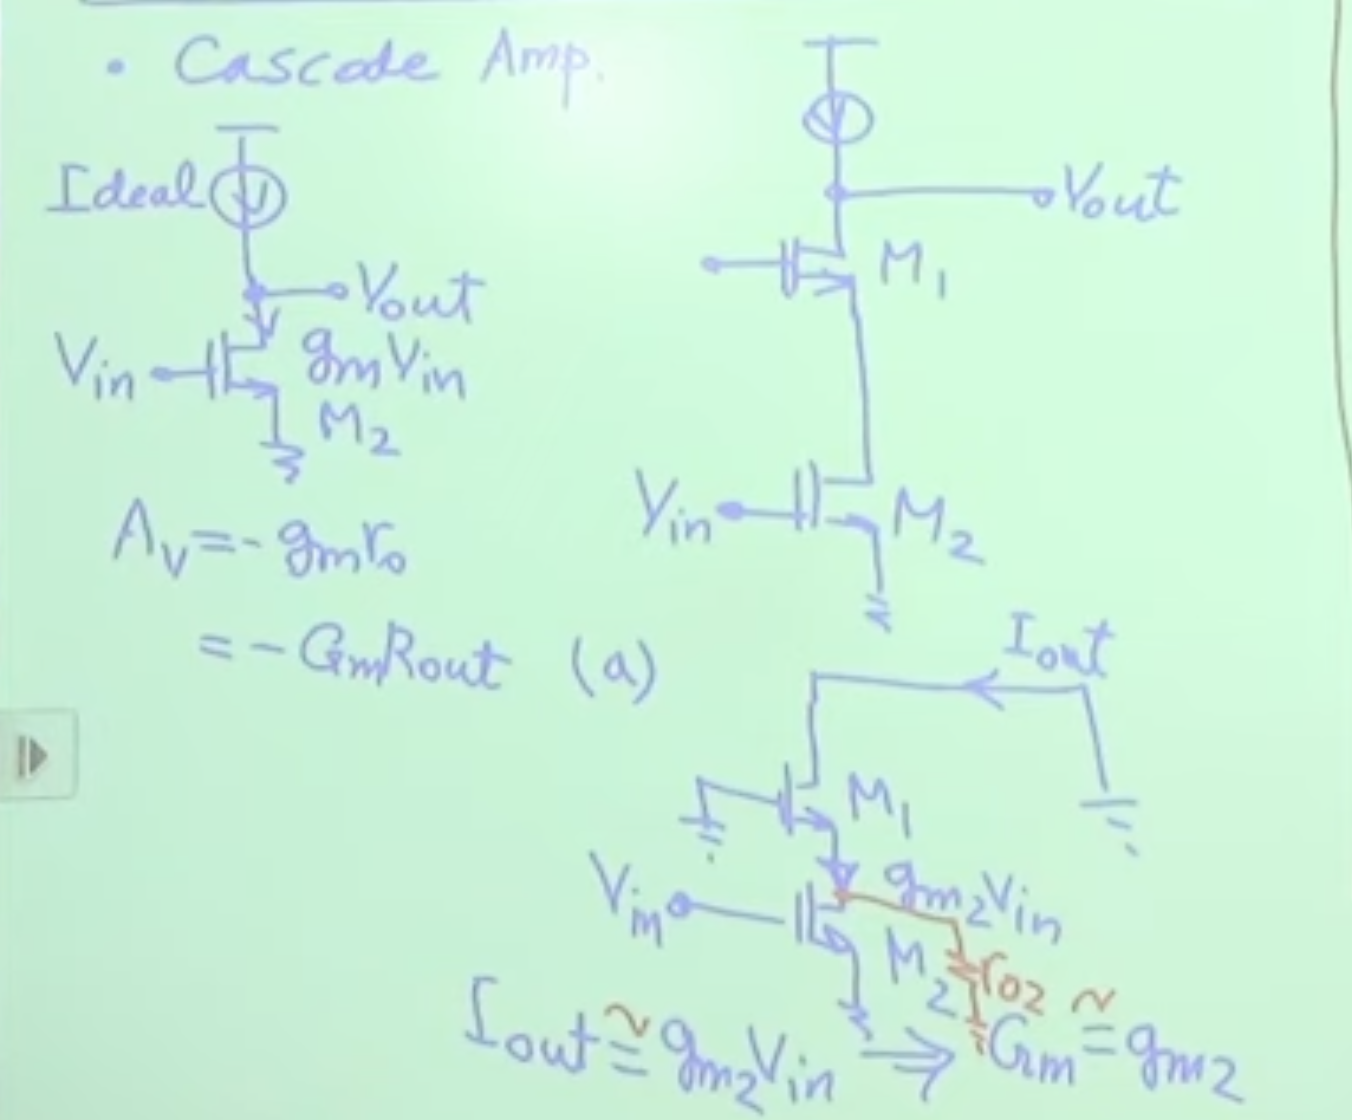 • Cascode Amp.
Ideal
Vout
Vin
gmVin
M2
Av = - gmro
= - GmRout (a)
Vout
M1
Vin
M2
Iout
M1
Vin
gm2Vin
M2
ro2
Iout ≅ gm2Vin ⇒ Gm ≅ gm2